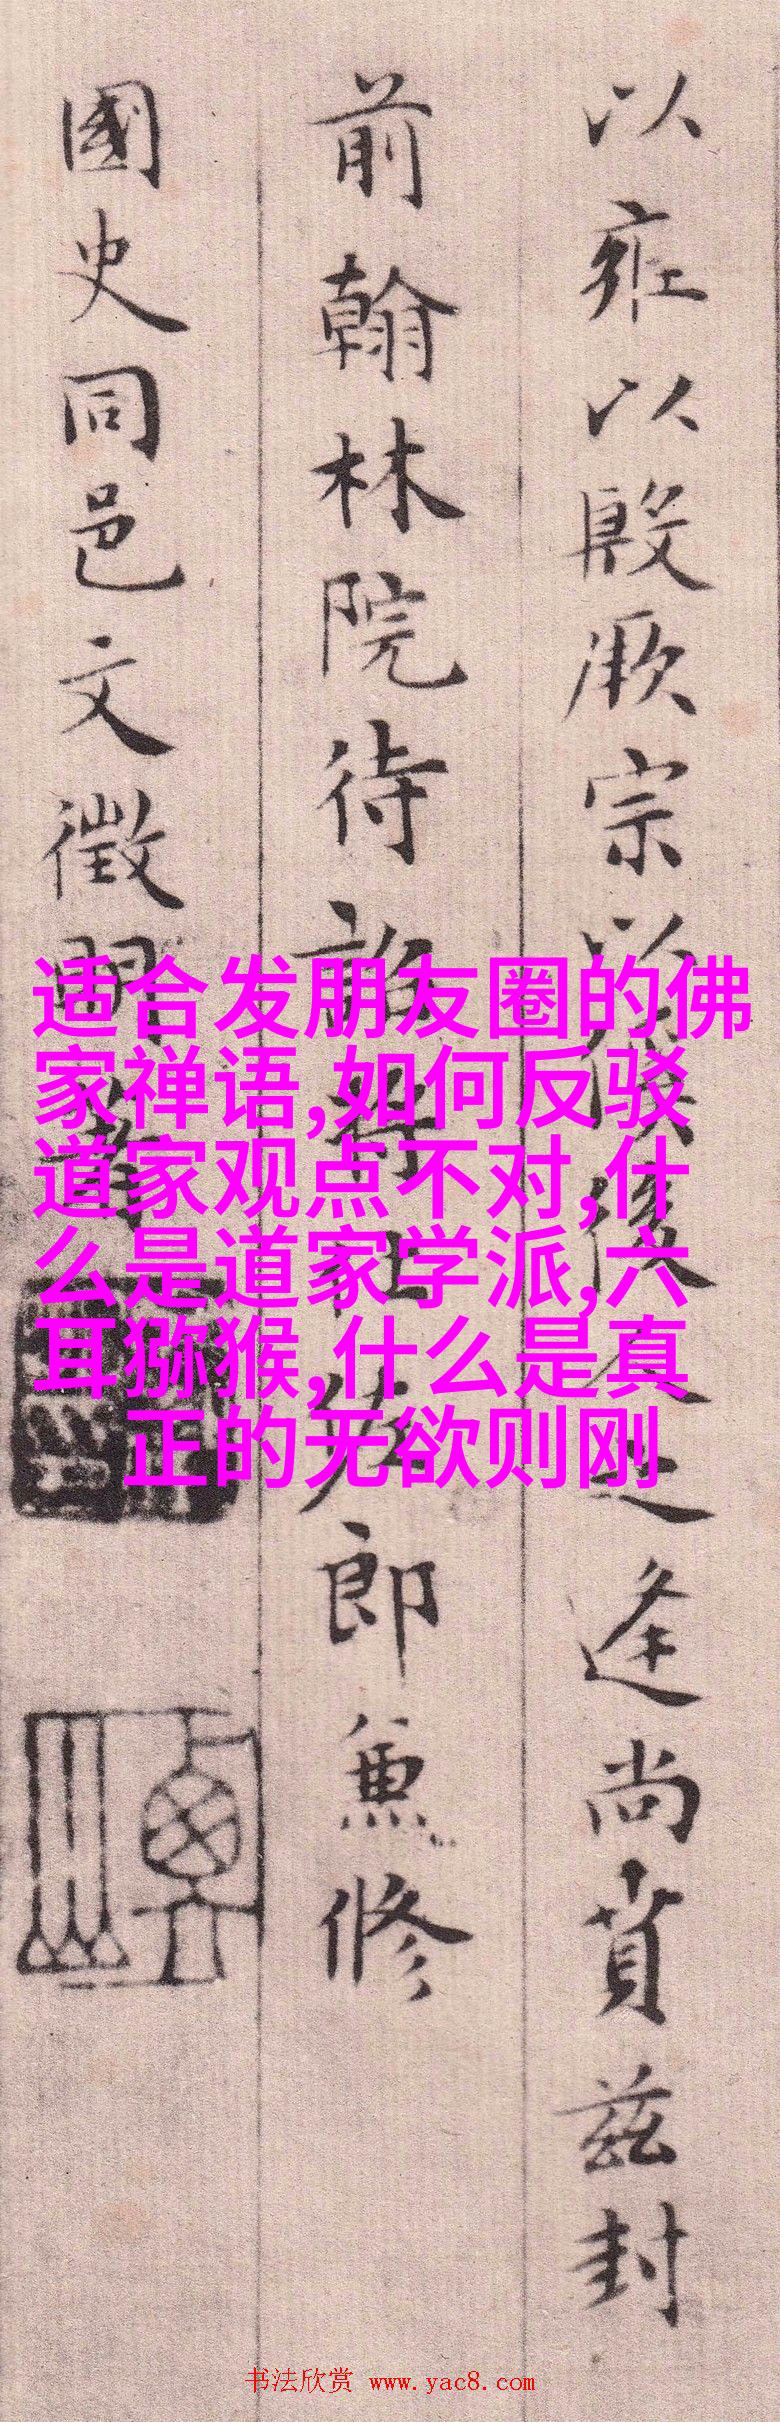 以雍以殷厥宗
之逢尚賁茲封
前翰林院待詔將仕佐郎兼修
國史同邑文徵明書
适合发朋友圈的佛
家禅语,如何反驳
道家观点不对,什
么是道家学派,六
耳猕猴,什么是真
正的无欲则刚
书法欣赏 www.yac8.com